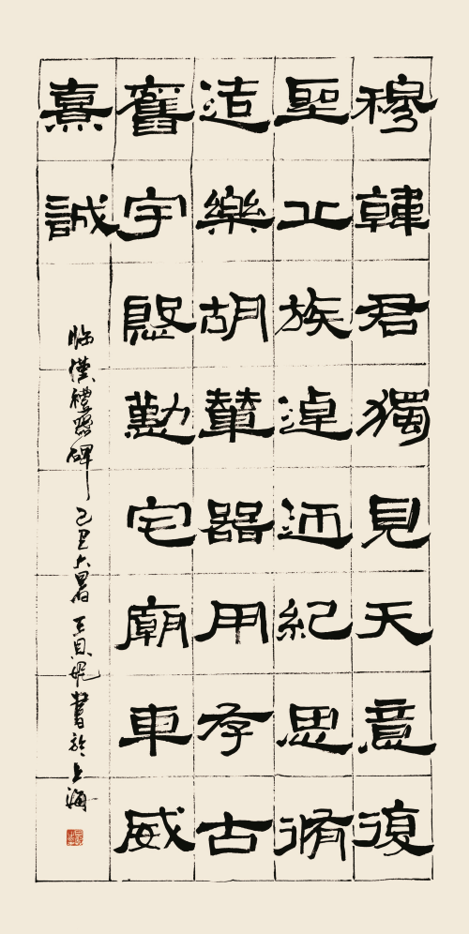 穆韓君獨見天意復
聖族逴紀思脩
造樂胡輦器用存古
舊宇殷勤宅廟車威
熹誠
临漢禮器碑 己丑大暑 王妮書於上海